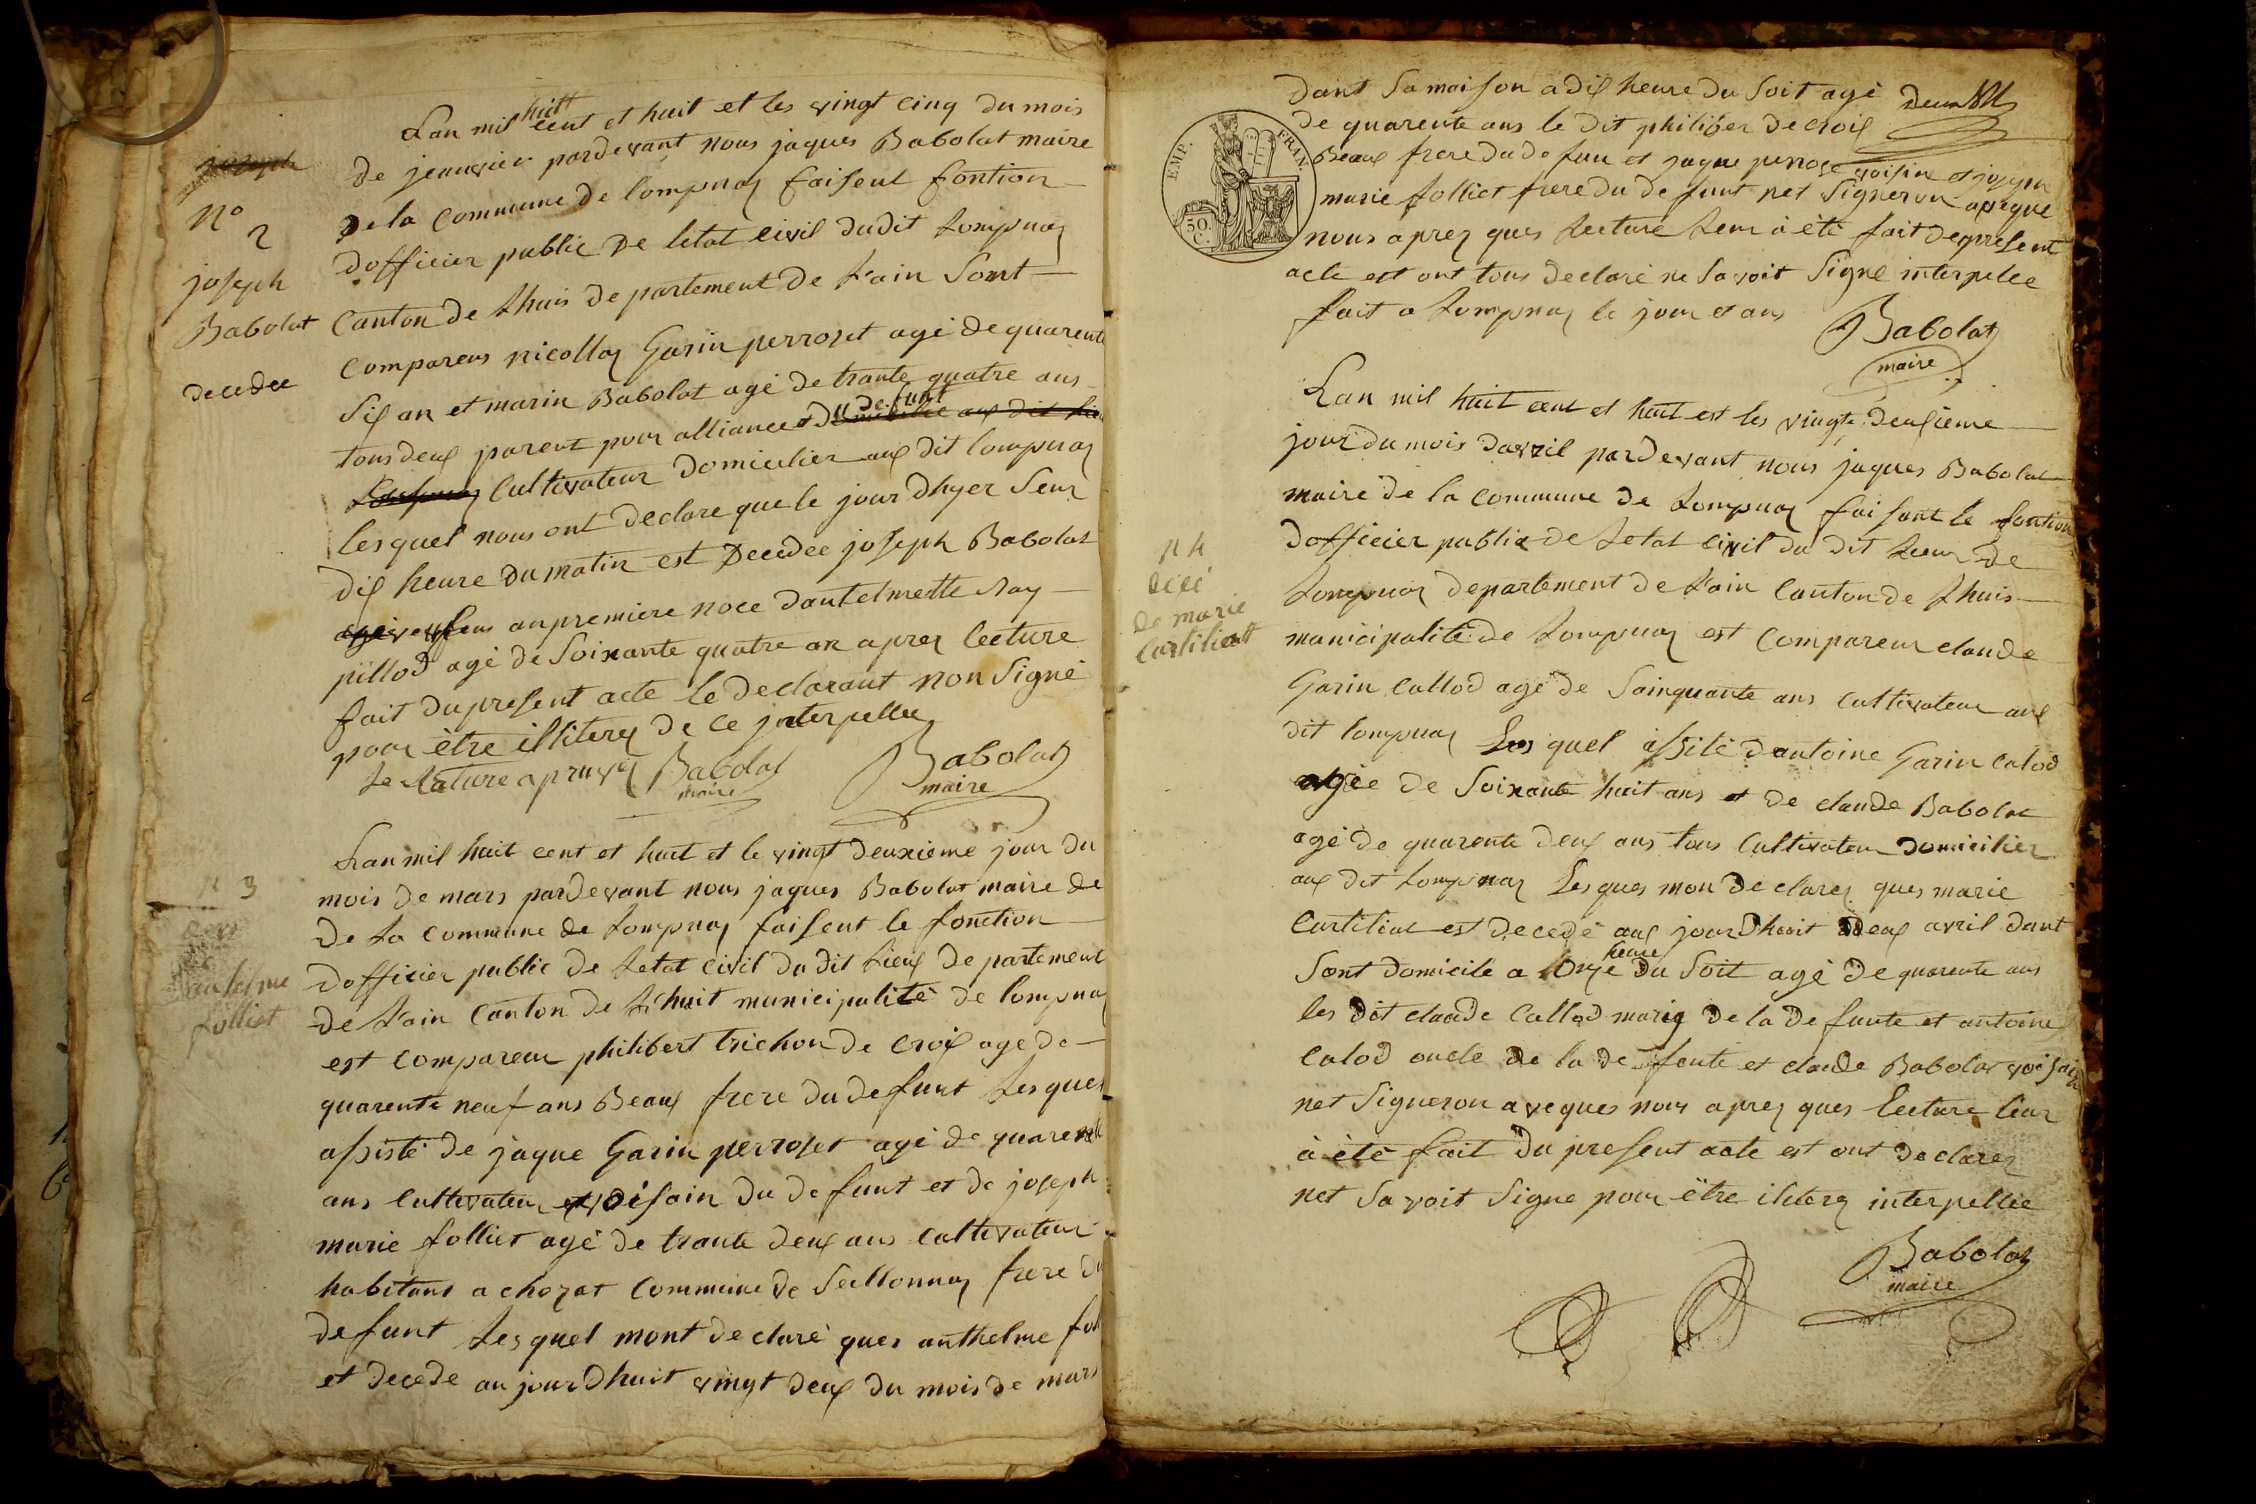 joseph
No
2
joseph
Babolat
decedee
Lan mil huit cent et huit et les vingt cinq du mois
de jeanvier pardevant nous jaques Babolat maire
de la commune de lompnaz faisent fontion
dofficier public de letat civil dudit Lompnaz
Canton de Lhuis departement de Lain sont
comparens nicollas Garin perroset agé de quarente
six an et marin Babolat agé de trante quatre ans
tous deux parent pour alliance du defunt
cultivateur domicilier aux dit lompnaz
lesquel nous ont declare que le jour dhyer seur
dix heure du matin est decedee joseph Babolat
agé veuf en premiere noce dantelmette Ray
pillod agé de soixante quatre an aprez lecture
fait du present acte le declarant non signé
pour être illiterez de ce jnterpellez
Babolat maire
Babolat
maire
N 3
anthelme
folliet
Lan mil huit cent et huit et le vingt deuxieme jour du
mois de mars pardevant nous jaques Babolat maire de
de La commune de Lompnaz faisent le fonction
dofficier public de Letat civil du dit Lieux departement
de Lain Canton de Lhuit municipalité de lompnaz
est compareur philibert trichon de croix age de
quarente neuf ans Beaux frere du defunt Lesquel
assisté de jaque Garin perroset agé de quarente
ans cultivateur voisain du defunt et de joseph
marie folliet agé de trante deux ans cultivateur
habitant a chozat commune de seillonnaz frere du
defunt Lesquel mont declaré ques anthelme fol
et decede aujourdhuit vingt deux du mois de mars
dant sa maison a dix heure du soit agé
de quarente ans le dit philiber de croix
Beaux frere du defun et jaque peroset voisin et joseph
marie folliet frere du defunt net signeron aveque
nous aprez ques Lecture Leur à été fait de present
acte est ont tous declaré ne savoit signe interpelee
fait a Lompnaz le jour et ans
Babolat
maire
EMP. FRAN.
50 C.
N 4
décé
de marie
Curtiliat
Lan mil huit cent et huit est les vingte deuxieme
jour du mois davril pardevant nous jaques Babolat
maire de la commune de Lompnaz faisant le fontion
dofficier public de Letat civil du dit Lieur de
Lompnaz departement de Lain Canton de Lhuis
municipalité de Lompnaz est compareur claude
Garin Callod agé de sainquante ans cultivateur aux
dit lompnaz Les quel assité dantoine Garin calod
agée de soixante huit ans et de claude Babolat
agé de quarente deux ans tous cultivateur domicilier
aux dit Lompnaz Lesques mon declarez ques marie
Curtiliat est decedé aux jourdhuit deux avril dant
sont domicile a onze heure du soit agé de quarente ans
les dit claude Callod mariq de la defunte et antoine
Calod oncle de la defunte et claude Babolat voisain
net signeron aveques nous aprez ques lecture leur
à été fait du present acte est ont declarez
net savoit signe pour être iliterez interpellée
Babolat
maire